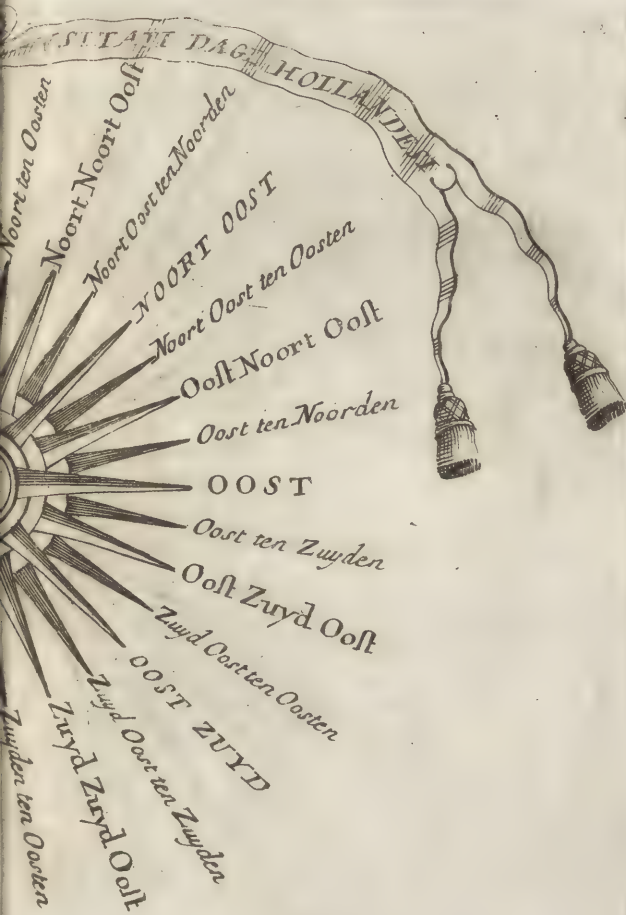 DAG
Noort ten Oosten
Noort Noort Ooſt
Noort Oost ten Noorden
NOORT OOST
Noort Oost ten Oosten
Ooſt Noort Ooſt
Oost ten Noorden
OOST
Oost ten Zuyden
Ooſt Zuyd Ooſt
Zuyd Oost ten Oosten
OOST ZUYD
Zuyd Oost ten Zuyden
Zuyd Zuyd Ooſt
Zuyden ten Oosten